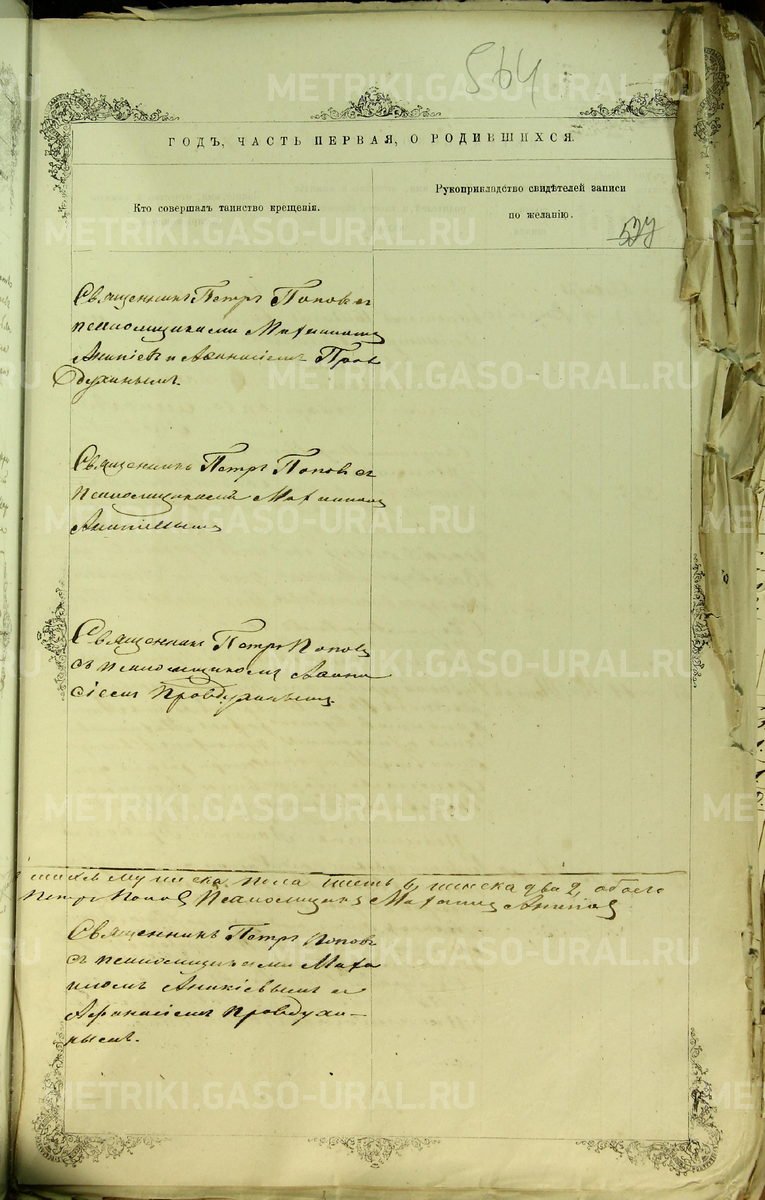 564
ГОДЪ, ЧАСТЬ ПЕРВАЯ, О РОДИВШИХСЯ.
Кто совершалъ таинство крещенія.
Рукоприкладство свидѣтелей записи
по желанію.
527
Священникъ Петръ Поповъ съ
псаломщиками
Аникіев и Афанасіемъ Пров
духинымъ.
Священникъ Петръ Поповъ съ
псаломщикомъ
Аникіевымъ
Священникъ Петръ Поповъ
съ псаломщикомъ Афана
сіемъ Провдухинымъ.
мужеска пола шесть 6, женска два 2, обоего
Петръ Поповъ Псаломщикъ
Священникъ Петръ Поповъ
съ псаломщиками
Аникіевымъ и
Афанасіемъ Провдухи-
нымъ.
METRIKI.GASO-URAL.RU